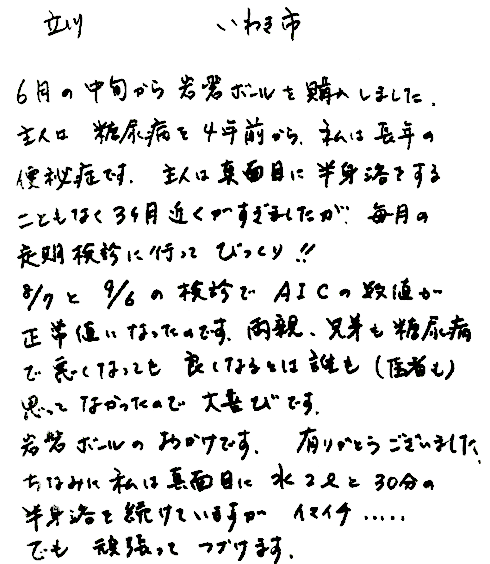 立川 いわき市
6月の中旬から岩盤ボールを購入しました。
主人は 糖尿病を4年前から、私は長年の
便秘症です。 主人は真面目に半身浴をする
こともなく3ヶ月近くがすぎましたが、毎月の
定期検診に行って びっくり!!
8/7と 9/6の検診で AICの数値が
正常値になったのです。両親、兄弟も糖尿病
で悪くなっても 良くなるとは誰も(医者も)
思って なかったので 大喜びです。
岩盤ボールの おかげです。 有りがとうございました。
ちなみに私は真面目に 水2ℓと30分の
半身浴を続けていますが イマイチ.....
でも 頑張って つづけます。